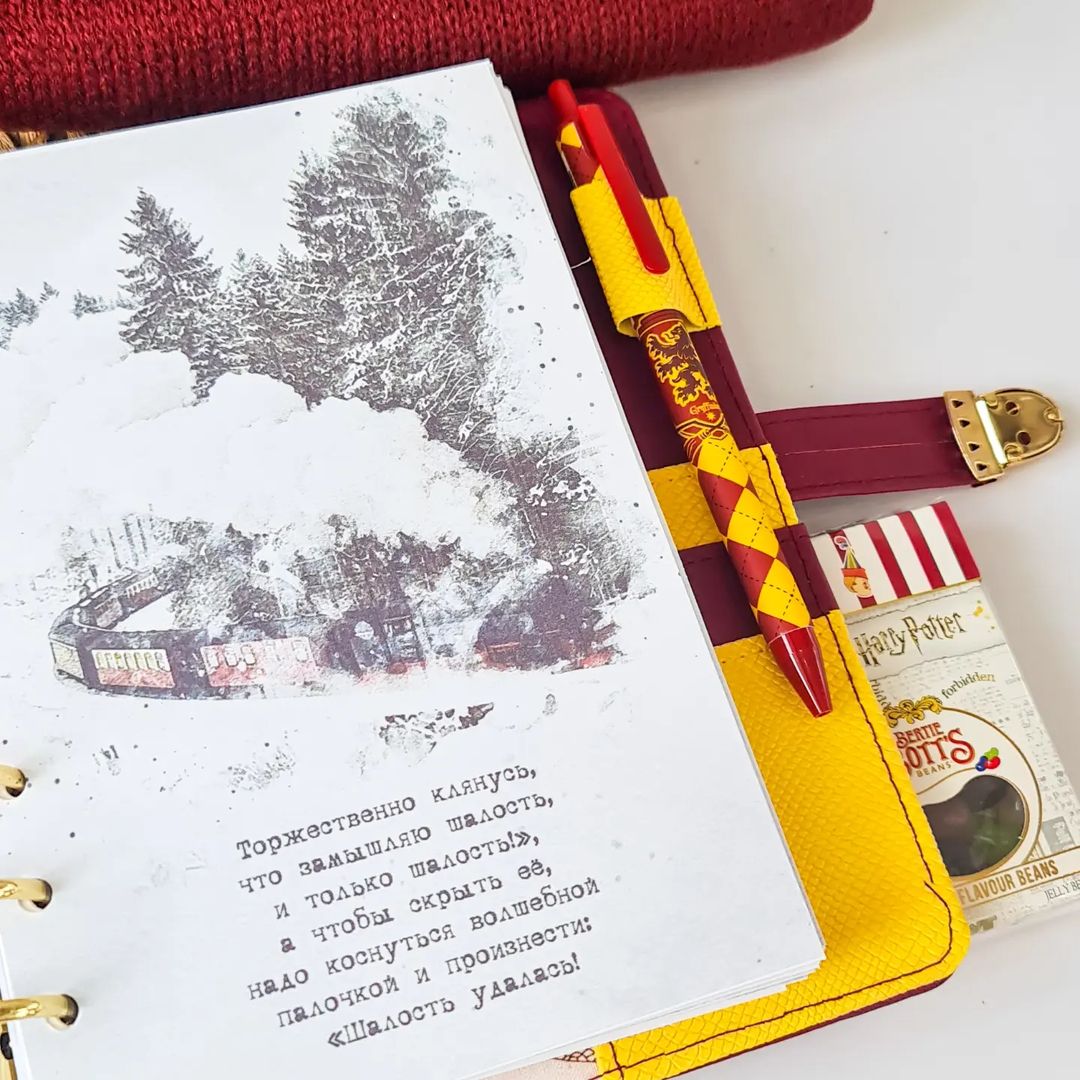 Торжественно клянусь,
что замышляю шалость,
и только шалость!»,
а чтобы скрыть её,
надо коснуться волшебной
палочкой и произнести:
«Шалость удалась!
Harry Potter
forbidden
BERTIE
BOTT'S
BEANS
FLAVOUR BEANS